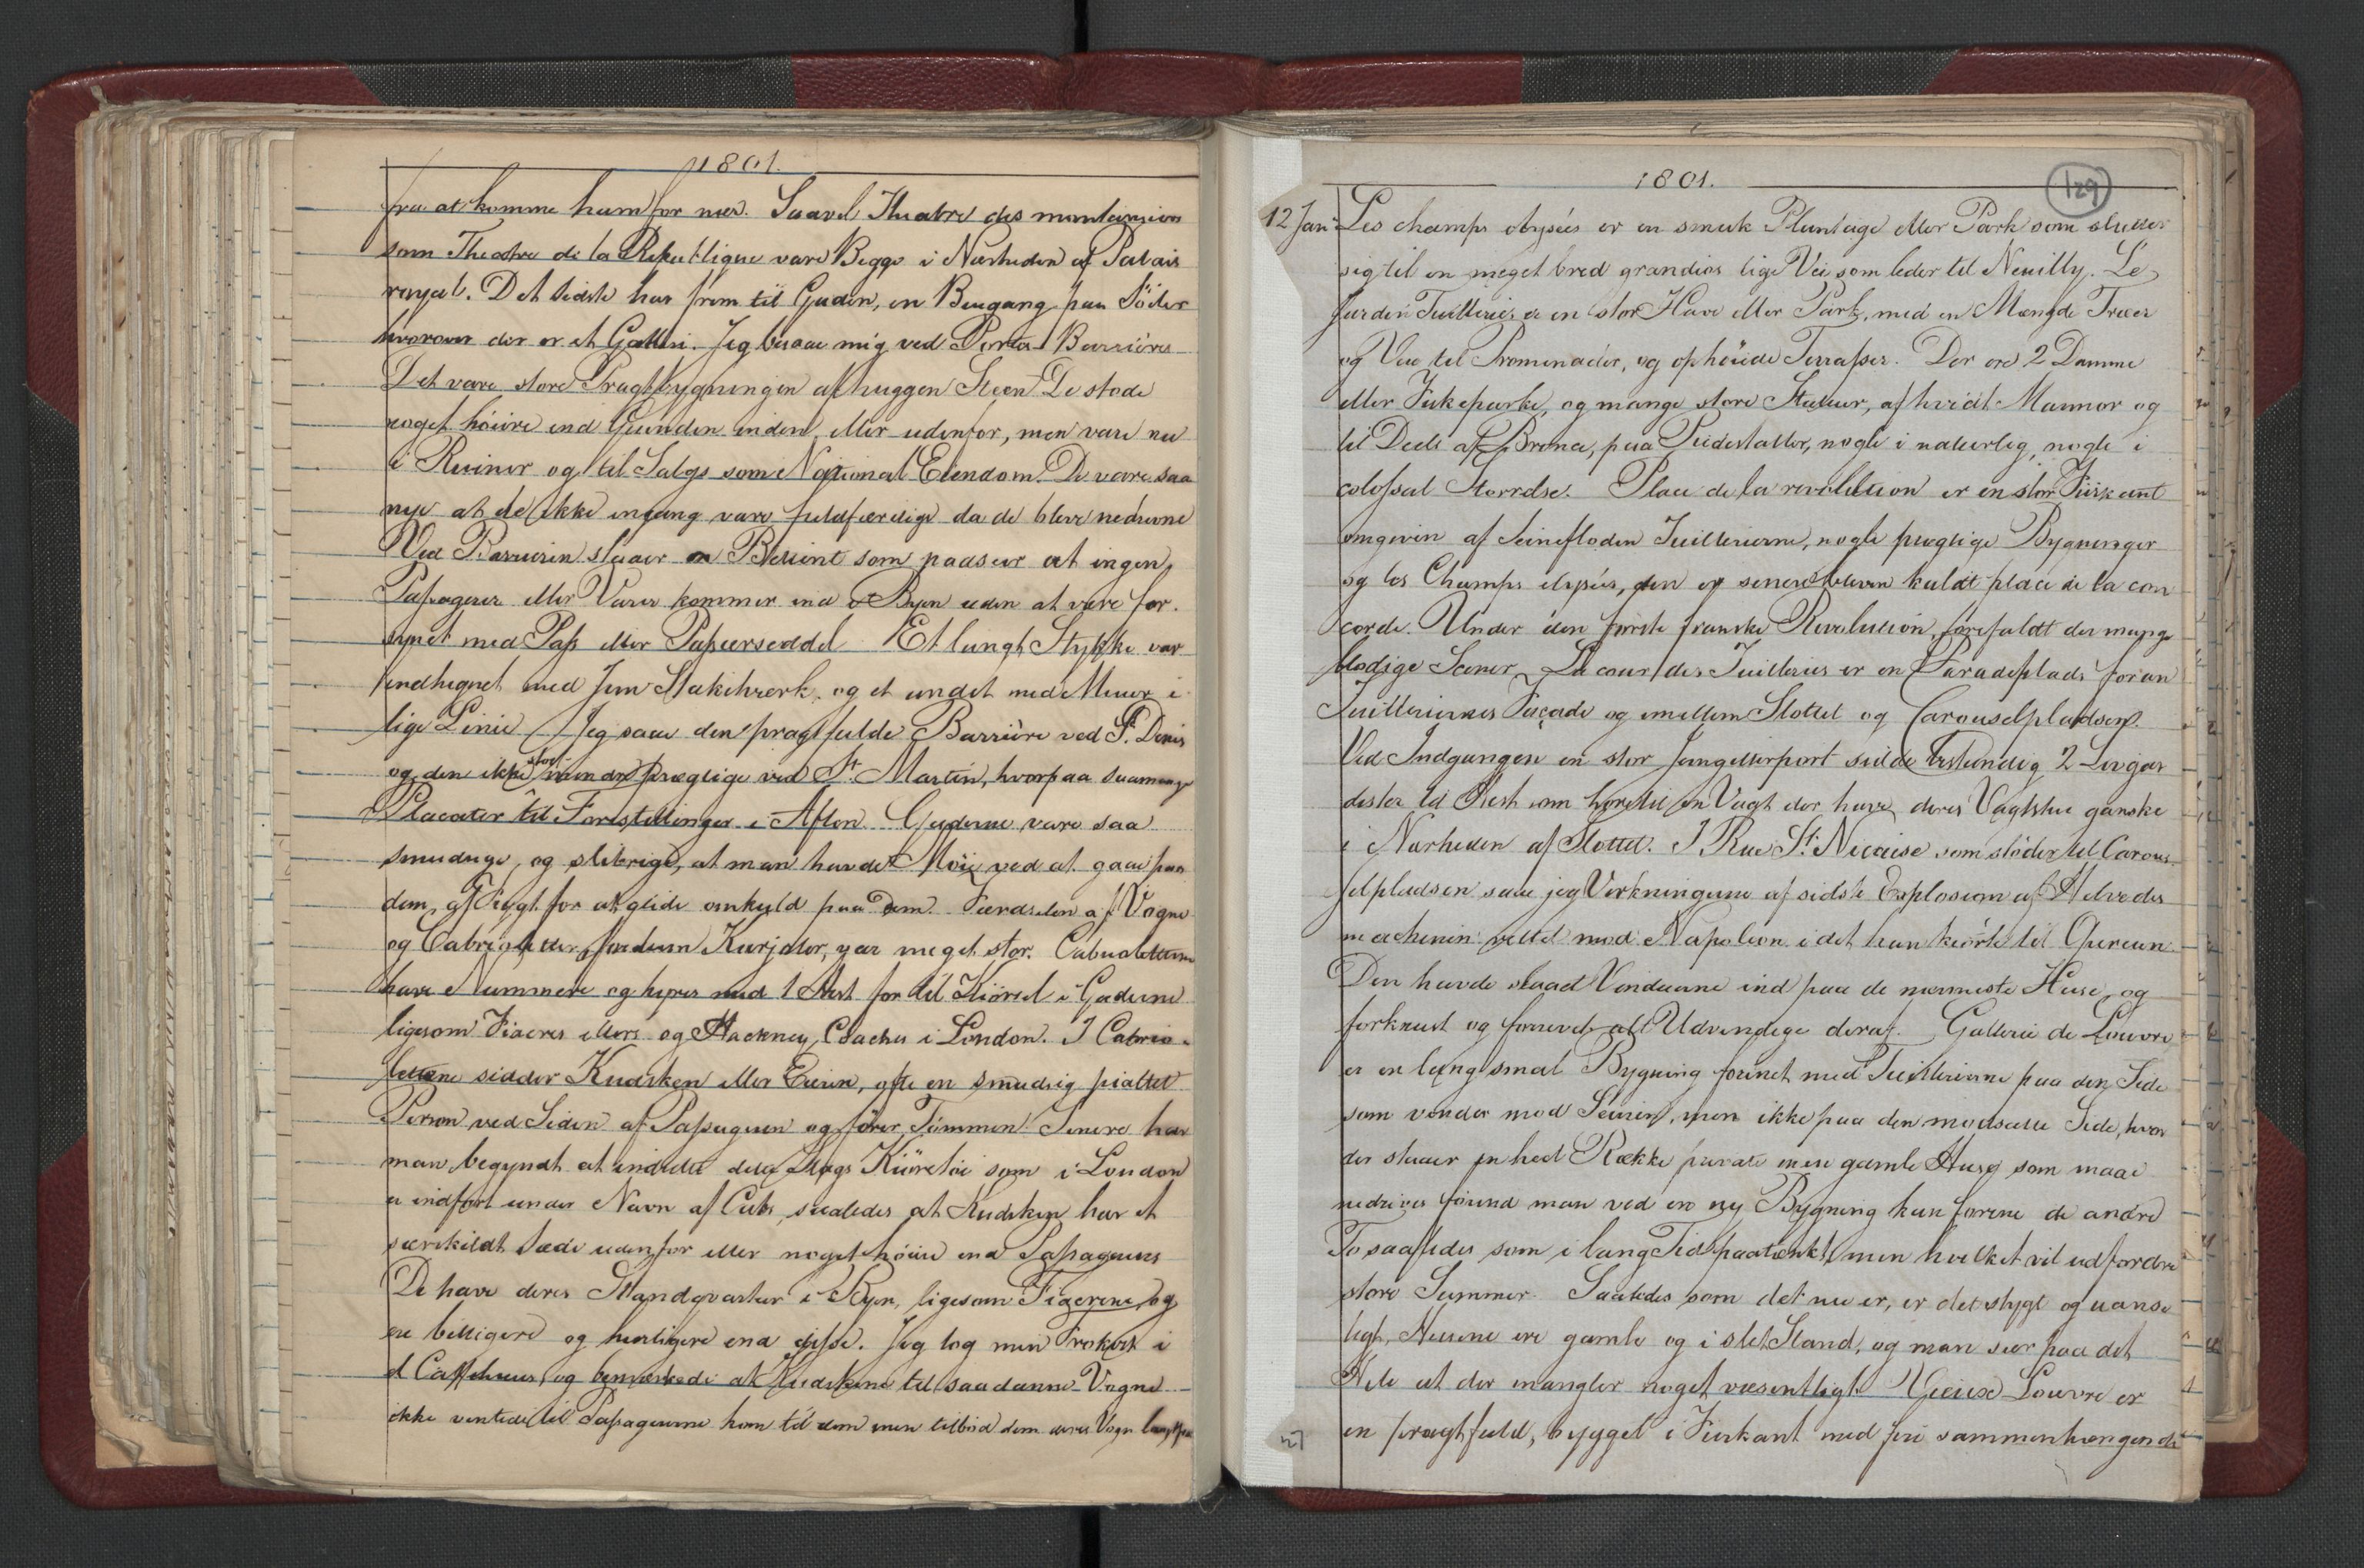 1801.
fra at komme ham for nær. Saavel Theatre des montansier
som Theatre de la Republique vare Begge i Nærheden af Palais
royal. Det sidste har frem til Gaden, en Buegang paa Söiler
hvorover der er et Galleri. Jeg besaae mig ved Porta Barriéres
Det vare store Pragtbygningen af huggen Steen De stode
noget höiere end Grunden inden eller udenfor, men vare nu
i Ruiner og til Salgs som National Eiendom. De vare saa
nye at de ikke engang vare fuldfærdige da de bleve nedrevne
Ved Barrieren staaer en Betient som paaseer at ingen
Passagerer eller Varer kommer ind i Byen uden at være for-
synet med Pass eller Passeerseddel Et langt Stykke var
indhegnet med Jern Stakitværk, og et andet med Muur i
lige Linie Jeg saae den pragtfulde Barriére ved St. Denis
og den ikke stor mindre prægtige ved St. Martin, hvorpaa saamange
Placater til Forestillinger i Aften. Gaderne vare saa
smudsige, og slibrige, at man havde Möie ved at gaae paa
dem, af Frygt for at glide omkuld paa dem. Færdselen af Vogne
og Cabrioletter, fordum Karjoler, var meget stor. Cabrioletterne
have Nummere og hyres med 1 Hest for til Kiörsel i Gaderne
ligesom Fiacres ellers og Hackney Coaches i London. I Cabrio-
letterne sidder Kudsken eller Eieren, ofte en smudsig pialtet
Person ved Siden af Passageren og förer Tömmen Senere har
man begyndt at indrette dette Slags Kiöretöi som i London
er indfört under Navn af Cabs, saaledes at Kudsken har et
særskildt Sæde udenfor eller noget höiere end Passagerens
De have deres Standqvarteer i Byen, ligesom Fiacrerne, og
ere billigere og hurtigere end disse. Jeg tog min Frokost i
et Caffehuus, og bemærkede at Kudskene til saadanne Vogne
ikke ventede til Passagererne kom til dem men tilböd dem deres Vogn
1801.
129
12 Jan Les champs elysées er en smuk Plantage eller Park som slutter
sig til en meget bred grandios lige Vei som leder til Neuilly. Le
Jardin Tuilleries er en stor Have eller Park, med en Mængde Træer
og Veie til Promenader, og ophöiede Terrasser. Der ere 2 Damme
eller Fiskeparke, og mange store Statuer, af hvidt Marmor og
til Deels af Bronce, paa Piedestaller, nogle i naturlig, nogle i
colossal Störrelse. Place de la revolution er en stor Fiirkant
omgiven af Seinefloden Tuillerierne, nogle prægtige Bygninger
og les Champs elysées, den er senere bleven kaldt place de la con
corde. Under den förste franske Revolution, forefaldt der mange
blodige Scener. La cour des Tuilleries er en Paradeplads foran
Tuilleriernes Façade og imellem Slottet og Carouselpladsen.
Ved Indgangen en stor Jerngitterport sidde bestandig 2 Livgar
dister til Hest som hörer til en Vagt der have deres Vagtstue ganske
i Nærheden af Slottet. I Rue St. Nicaise som stöder til Carous-
selpladsen saae jeg Virkningerne af sidste Explosion af Helvedes
machinen rettet mod Napoleon i det han kiörte til Operaen.
Den havde slaaet Vinduerne ind paa de nærmeste Huse, og
forknust og forrevet alt Udvendige deraf. Gallerie de Louvre
er en lang smal Bygning forenet med Tuillerierne paa den Side
som vender mod Seinen, men ikke paa den modsatte Side, hvor
der staaer en heel Række private men gamle Huse som maae
nedrives förend man ved en ny Bygning kan forene de andre
To saaledes som i lang Tid paatænkt, men hvilket vil udfordre
store Summer. Saaledes som det nu er, er det stygt og uanse
ligt, Husene ere gamle og i slet Stand, og man seer paa det
Hele at der mangler noget væsentligt Vieux Louvre er
en pragtfuld, bygget i Fiirkant med fire sammenhængende